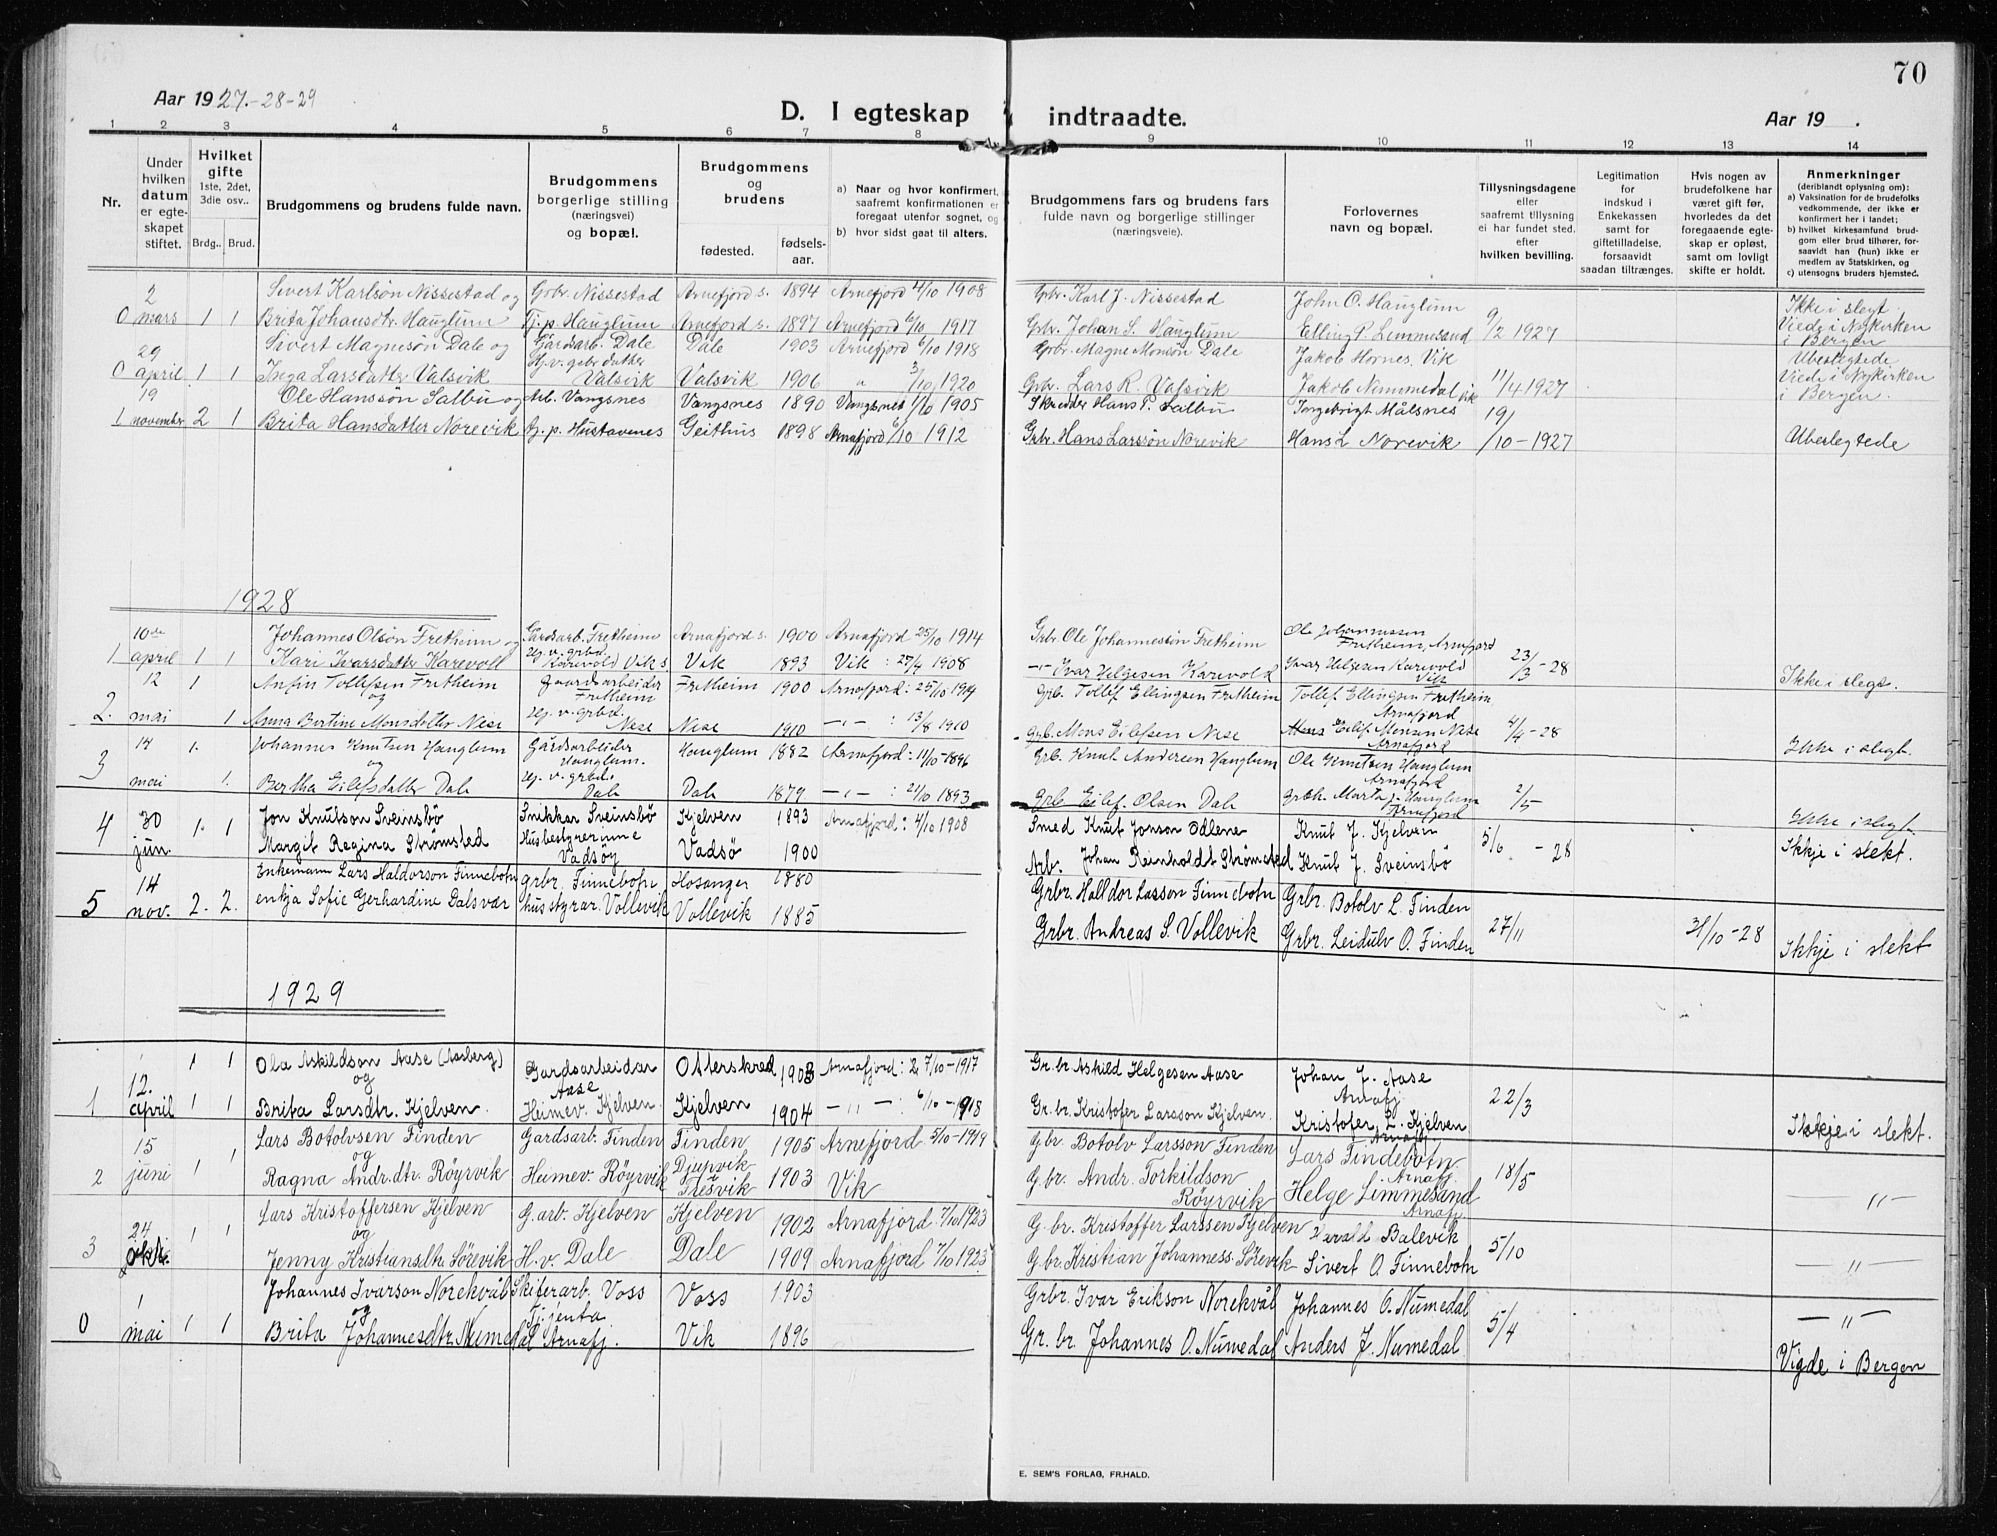 70
Aar 1927.-28-29
D. I egteskap indtraadte.
Aar 19 .
1 2 3 4 5 6 7 8 9 10 11 12 13 14
Nr.
Under hvilken datum er egteskapet stiftet.
Hvilket gifte 1ste, 2det, 3die osv..
Brdg.. Brud.
Brudgommens og brudens fulde navn.
Brudgommens borgerlige stilling (næringsvei) og bopæl.
Brudgommens og brudens
fødested. fødselsaar.
a) Naar og hvor konfirmert, saafremt konfirmationen er foregaat utenfor sognet, og
b) hvor sidst gaat til alters.
Brudgommens fars og brudens fars fulde navn og borgerlige stillinger (næringsveie).
Forlovernes navn og bopæl.
Tillysningsdagene eller saafremt tillysning ei har fundet sted. efter hvilken bevilling.
Legitimation for indskud i Enkekassen samt for giftetilladelse, forsaavidt saadan tiltrænges.
Hvis nogen av brudefolkene har været gift før, hvorledes da det foregaaende egteskap er opløst, samt om lovligt skifte er holdt.
Anmerkninger (deriblandt oplysning om):
a) Vaksination for de brudefolks vedkommende, der ikke er konfirmert her i landet;
b) hvilket kirkesamfund brudgom eller brud tilhører, forsaavidt han (hun) ikke er medlem av Statskirken, og
c) utensogns bruders hjemsted.
2 Sivert Karlsön Nissestad og Grbr. Nissestad Arnefjord s. 1894 Arnefjord 4/10 1908 Grbr. Karl J. Nissestad John O. Hauglum Ikke i slegt
0 mars 1 1 Brita Johansdtr. Hauglum Tj. p. Hauglum Arnefjord s. 1897 Arnefjord 6/10 1917 Grbr. Johan S. Hauglum Elling P. Limmesand 9/2 1927 Viede i Nykirken i Bergen
29 Sivert Magnesön Dale og Gårdsarb. Dale Dale 1903 Arnefjord 6/10 1918 Grbr. Magne Monsön Dale Jakob Hornes, Vik Ubeslegtede
0 april 1 1 Inga Larsdatter Valsvik Hj.v. gbr datter Valsvik Valsvik 1906 " 3/10 1920 Grbr. Lars R. Valsvik Jakob Nummedal Vik 11/4 1927 Viede i Nykirken i Bergen.
19 Ole Hanssön Salbu og Arb. Vangsnes Vangsnes 1890 Vangsnes 1/10 1905 Skredder Hans P. Salbu Ingebrigt Målsnes 19/
1 november 2 1 Brita Hansdatter Norevik Tj. p. Hustavenes Geithus 1898 Arnafjord 6/10 1912 Grbr. Hans Larssön Norevik Hans L Norevik 10 - 1927 Ubeslegtede
1928
10de Johannes Olsön Fretheim og Gårdsarb. Fretheim Arnafjord s. 1900 Arnafjord 25/10 1914 Grbr. Ole Johannessön Fretheim Ole Johannessen Fretheim, Arnafjord
1 april 1 1 Kari Ivarsdatter Karevoll Hj. v. grbd. Karevold Vik s Vik 1893 Vik : 27/4 1908 -"- Ivar Helgesen Karevold Ivar Helgesen Karevold Vik 23/3 - 28 Ikke i slegt.
12 1 Anfin Tollefsen Fretheim og Gaardsarbeider Fretheim Fretheim 1900 Arnafjord: 25/10 1914 Grb. Tollef Ellingsen Fretheim Tollef Ellingsen Fretheim Arnafjord
2. mai 1 Anna Bertine Monsdatter Nese Hj. v. grbd. Nese Nese 1910 -"- : 13/8 1910 Grb. Mons Eilefsen Nese Eilef Monsen Nese Arnafjord 4/4 - 28 Ikke i slegt.
3 14 1. Johannes Knutsen Hauglum og Gårdsarbeider Hauglum. Hauglum 1882 Arnafjord: 11/10-1896 Grb. Knut Andersen Hauglum Ole Knutsen Hauglum Arnafjord
mai 1. Bertha Eilefsdatter Dale Hj. v. grbd. Dale Dale 1879 -"- : 21/10 1893 Grb. Eilef Olsen Dale Grbk. Marta J. Hauglum Arnafjord 2/5 - Ikke i slegt.
4 30 1. 1 Jon Knutson Sveinsbö Snikkar Sveinsbö Kjelven 1893 Arnafjord: 4/10 1908 Smed Knut Jonson Odlene Knut J. Kjelven 5/6 - 28
jun. Margit Regina Strömsted Husbestyrerinne Vadsöy Vadsö 1900 Arb. Johan Reinholdt Strömsted Knut J. Sveinsbö Ikkje i slekt.
14 Enkemann Lars Haldorson Finnebotn grbr. Finnebotn Hosanger 1880 Grbr. Halldor Lasson Finnebotn Grbr. Botolv L. Finden
5 nov. 2. 2. enkja Sofie Gerhardine Dalsvær husstyrar. Vollevik Vollevik 1885 Grbr. Andreas S. Vollevik Grbr. Leidulv O. Finden 27/11 31/10-28 Ikkje i slekt
1929
12. 1 1 Ola Askildson Aase (Aasberg) og Gardsarbeidar Aase Otterskred 1903 Arnafjord: 7/10-1917 Gr. br. Askild Helgesen Aase Johan J. Aase Arnafj
1 april 1 1 Brita Larsdtr. Kjelven. Heimev. Kjelven Kjelven 1904 -"- : 6/10-1918 Gr. br. Kristofer Larsson Kjelven. Kristofer L. Kjelven Arnafj 22/3 Ikkje i slekt.
15 Lars Botolvsen Finden og Gardsarb. Finden Finden 1905 Arnefjord 5/10-1919 Gbr. Botolv Larsson Finden Lars Findebotn Arnafj.
2 juni 1 1 Ragna Andr.dtr. Röyrvik Heimev. Röyrvik Djupvik Fresvik 1903 Vik G. br. Andr. Torkildson Röyrvik Helge Limmesand Arnafj 18/5 - " -
24 1 1 Lars Kristoffersen Kjelven og G. arb. Kjelven Kjelven 1902 Arnafjord 7/10 1923 G. br. Kristoffer Larssen Kjelven Harald Balevik
3 okt. Jenny Kristiansdtr. Sörevik H. v. Dale Dale 1909 Arnafjord 7/10 1923 G. br. Kristian Johanness. Sörevik Sivert O. Finnebotn 5/10 - " -
1 Johannes Ivarson Norekvål og Skiferarb. Voss Voss 1903 Grbr. Ivar Erikson Norekvål Johannes O. Numedal
0 mai 1 1 Brita Johannesdtr. Numedal Tjenta Arnafj. Vik 1896 Gr. br. Johannes O. Numedal Anders J. Numedal 5/4 - " -
Vigde i Bergen
E. SEM'S FORLAG, FR.HALD.